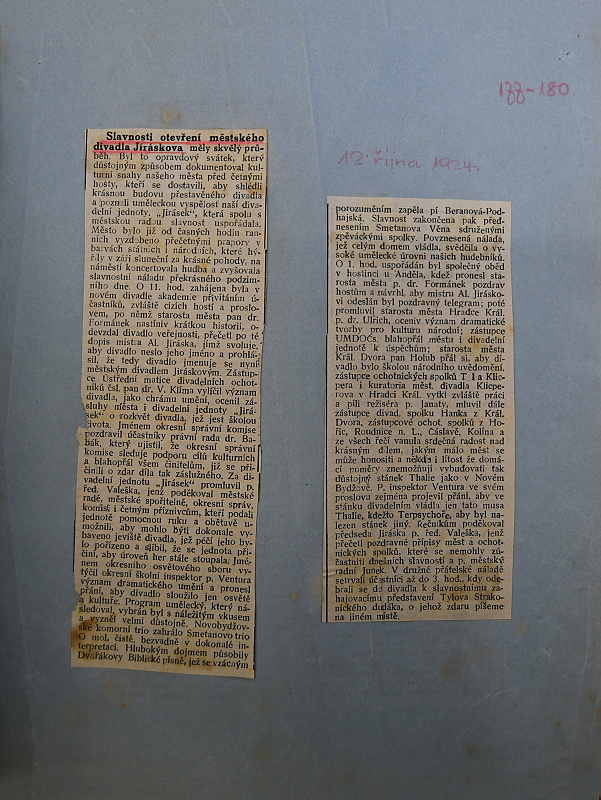 177-180.
12. října 1924.
Slavnosti otevření městského
divadla Jiráskova měly skvělý prů-
běh. Byl to opravdový svátek, který
důstojným způsobem dokumentoval kul-
turní snahy našeho města před četnými
hosty, kteří se dostavili, aby shlédli
krásnou budovu přestavěného divadla
a poznali uměleckou vyspělost naší diva-
delní jednoty. „Jirásek“, která spolu s
městskou radou slavnost uspořádala.
Město bylo již od časných hodin ran-
ních vyzdobeno přečetnými prapory v
barvách státních i národních, které hý-
řily v září sluneční za krásné pohody, na
náměstí koncertovala hudba a zvyšovala
slavnostní náladu překrásného podzim-
ního dne. O 11. hod. zahájena byla v
novém divadle akademie přivítáním ú-
častníků, zvláště cizích hostí a proslo-
vem, po němž starosta města pan dr.
Formánek nastíniv krátkou historii, o-
devzdal divadlo veřejnosti, přečetl po té
dopis mistra Al. Jiráska, jímž svoluje,
aby divadlo neslo jeho jméno a prohlá-
sil, že tedy divadlo jmenuje se nyní
městským divadlem Jiráskovým. Zástup-
ce Ústřední matice divadelních ochot-
níků čsl. pan dr. V. Klíma vylíčil význam
divadla, jako chrámu umění, ocenil zá-
sluhy města i divadelní jednoty „Jirá-
sek“ o rozkvět divadla, jež jest školou
života. Jménem okresní správní komise
pozdravil účastníky právní rada dr. Ba-
bák, který ujistil, že okresní správní
komise sleduje podporu cílů kulturních
a blahopřál všem činitelům, již se při-
činili o zdar díla tak záslužného. Za di-
vadelní jednotu „Jirásek“ promluvil p.
řed. Valeška, jenž poděkoval městské
radě, městské spořitelně, okresní správ.
komisi i četným příznivcům, kteří podali
jednotě pomocnou ruku a obětavě u-
možnili, aby mohlo býti dokonale vy-
baveno jeviště divadla, jež péčí jeho by-
lo pořízeno a slíbil, že se jednota při-
činí, aby úroveň her stále stoupala. Jmé-
nem okresního osvětového sboru vy-
týčil okresní školní inspektor p. Ventura
význam dramatického umění a pronesl
přání, aby divadlo sloužilo jen osvětě
a kultuře. Program umělecký, který ná-
sledoval, vybrán byl s náležitým vkusem
a vyzněl velmi důstojně. Novobydžov-
ské komorní trio zahrálo Smetanovo trio
G mol, čistě, bezvadně v dokonalé in-
terpretaci. Hlubokým dojmem působily
Dvořákovy Biblické písně, jež se vzácným
porozuměním zapěla pí Beranová-Pod-
hajská. Slavnost zakončena pak před-
nesením Smetanova Věna sdruženými
zpěváckými spolky. Povznesená nálada,
jež celým domem vládla, svědčila o vy-
soké umělecké úrovni našich hudebníků.
O 1. hod. uspořádán byl společný oběd
v hostinci u Anděla, kdež pronesl sta-
rosta města p. dr. Formánek pozdrav
hostům a návrhl, aby mistru Al. Jirásko-
vi odeslán byl pozdravný telegram; poté
promluvil starosta města Hradce Král.
p. dr. Ulrich, oceniv význam dramatické
tvorby pro kulturu národní; zástupce
UMDOČs. blahopřál městu i divadelní
jednotě k úspěchům; starosta města
Král. Dvora pan Holub přál si, aby di-
vadlo bylo školou národního uvědomění,
zástupce ochotnických spolků Tyl a Klic-
pera i kuratoria měst. divadla Klicpe-
rova v Hradci Král. vytkl zvláště práci
a píli režiséra p. Janaty, mluvil dále
zástupce divad. spolku Hanka z Král.
Dvora, zástupcové ochot. spolků z Ho-
řic, Roudnice n. L., Čáslavě, Kolína a
ze všech řečí vanula srdečná radost nad
krásným dílem, jakým málo měst se
může honositi a někdy i lítost že domá-
cí poměry znemožňují vybudovati tak
důstojný stánek Thalie jako v Novém
Bydžově. P. inspektor Ventura ve svém
proslovu zejména projevil přání, aby ve
stánku divadelním vládla jen tato musa
Thalie, kdežto Terpsychoře, aby byl na-
lezen stánek jiný. Řečníkům poděkoval
předseda Jiráska p. řed. Valeška, jenž
přečetl pozdravné přípisy měst a ochot-
nických spolků, které se nemohly zú-
častniti dnešních slavností a p. městský
radní Junek. V družné přátelské náladě
setrvali účastníci až do 3. hod., kdy ode-
brali se do divadla k slavnostnímu za-
hajovacímu představení Tylova Strako-
nického dudáka, o jehož zdaru píšeme
na jiném místě.